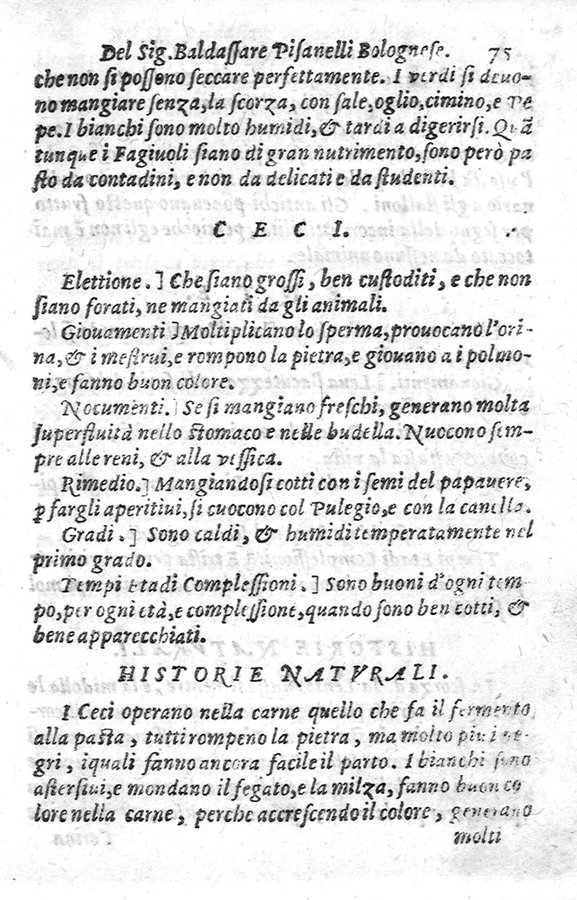 Del Sig. Baldaſſare Piſanelli Bologneſe. 75
che non ſi poſſono ſeccare perfettamente. I verdi ſi deuo-
no mangiare ſenza, la ſcorza, con ſale, oglio, cimino, e pe
pe. I bianchi ſono molto humidi, & tardi a digerirſi. Quã
tunque i Fagiuoli ſiano di gran nutrimento, ſono però pa
ſto da contadini, e non da delicati e da ſtudenti.
C E C I.
Elettione. ] Che ſiano groſſi, ben cuſtoditi, e che non
ſiano forati, ne mangiati da gli animali.
Giouamenti ] Moltiplicano lo ſperma, prouocano l'ori-
na, & i meſtrui, e rompono la pietra, e giouano a i polmo-
ni, e fanno buon colore.
Nocumenti. ] Se ſi mangiano freſchi, generano molta
ſuperfluità nello ſtomaco e nelle budella. Nuocono ſem-
pre alle reni, & alla veſſica.
Rimedio. ] Mangiandoſi cotti con i ſemi del papauere,
ꝑ fargli aperitiui, ſi cuocono col Pulegio, e con la canella.
Gradi . ] Sono caldi, & humidi temperatamente nel
primo grado.
Tempi Etadi Compleſſioni . ] Sono buoni d'ogni tem
po, per ogni età, e compleſſione, quando ſono ben cotti, &
bene apparecchiati.
HISTORIE NATVRALI.
I Ceci operano nella carne quello che fa il fermento
alla paſta, tutti rompeno la pietra, ma molto piu i ne-
gri, iquali fanno ancora facile il parto. I bianchi ſono
aſterſiui, e mondano il fegato, e la milza, fanno buon co
lore nella carne, perche accreſcendo il colore, generano
molti